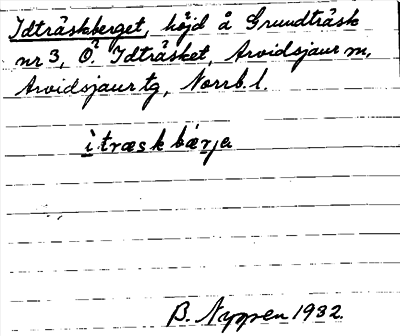 Idträskberget, höjd å Grundträsk
nr 3, Ö. Idträsket, Arvidsjaur m,
Arvidsjaur tg, Norrb. l.
ìtræskbærja
B. Nygren 1932.